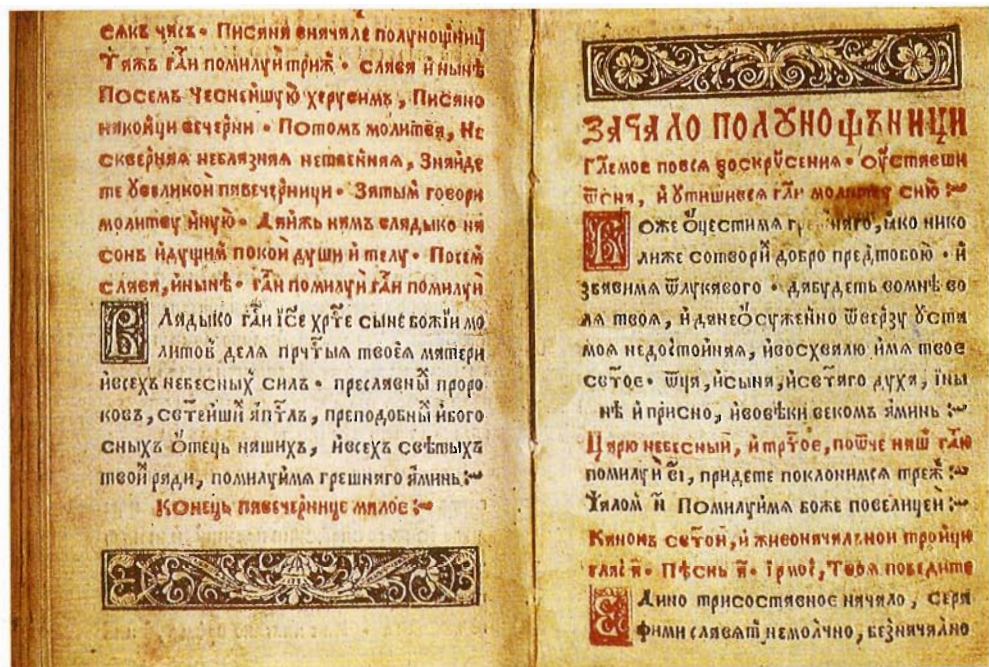 сѧкъ чясъ · Писяня вначале полунощниц
Тяжъ гл҃и помилуй триж · славя и нынѣ
Посемъ Честнейшую херувимъ, Писяно
няконци вечерни · Потомъ молитвя, Не
сквернꙗѧ неблязняѧ нетленняѧ, Знайде
те Ꙋвеликои пявечерници · Зятым говори
молитву иную · Дяижь нямъ влядыко ня
сонъ идꙋщим покои дꙋши и телꙋ · Посем
славя, инынѣ · гс҃и помилуи гс҃и помилуи
Влядыко гс҃и іс҃е хрт҃е сыне божіи мо
литов деля прчт҃ыѧ твоеѧ мятери
ивсехъ небесных сил · преслявны проро
ковъ, свтейши япл҃ъ, преподобны ибого
сныхъ ѻтець няшихъ, ивсехъ свѣтыхъ
твои ряди, помилꙋимѧ грешняго яминь :~
Конець пявечернице малое :~
Зачало полꙋнощъници
Гл҃емое повсѧ воскрꙋсениѧ · оустявши
ѿсня, и ꙋтишивсѧ гл҃и молитву сию :~
Боже ѻцестимѧ няго, ꙗко нико
лиже сотвори добро предтобою · и
збявимѧ ѿлꙋкявого · дябꙋдеть вомнѣ во
лѧ твоѧ, и дянеѻсуженно ѿверзꙋ ꙋстя
моѧ недостоиняѧ, ивосхвялю имѧ твое
свтое · ѿця, исыня, исвтяго дꙋхя, іны
нѣ и присно, ивовѣки векомъ яминь :~
Царю небесныи, и трт҃ое, поѿче няш гл҃ю
помилꙋи в҃і, придете поклонимсѧ треж :~
Ѱялом н҃ Помилꙋимѧ боже повелицеи :~
Кянонъ свтои, и живонячяльнои троици
гляс я҃ · Пѣснь я҃ · ірмос, Твоѧ победите
Едино трисоставное нячяло, серя
фими слявѧт немолчно, безнячялно